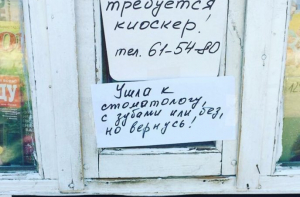 требуется
киоскер!
тел. 61-54-80
Ушла к
стоматологу,
с зубами или без,
но вернусь!